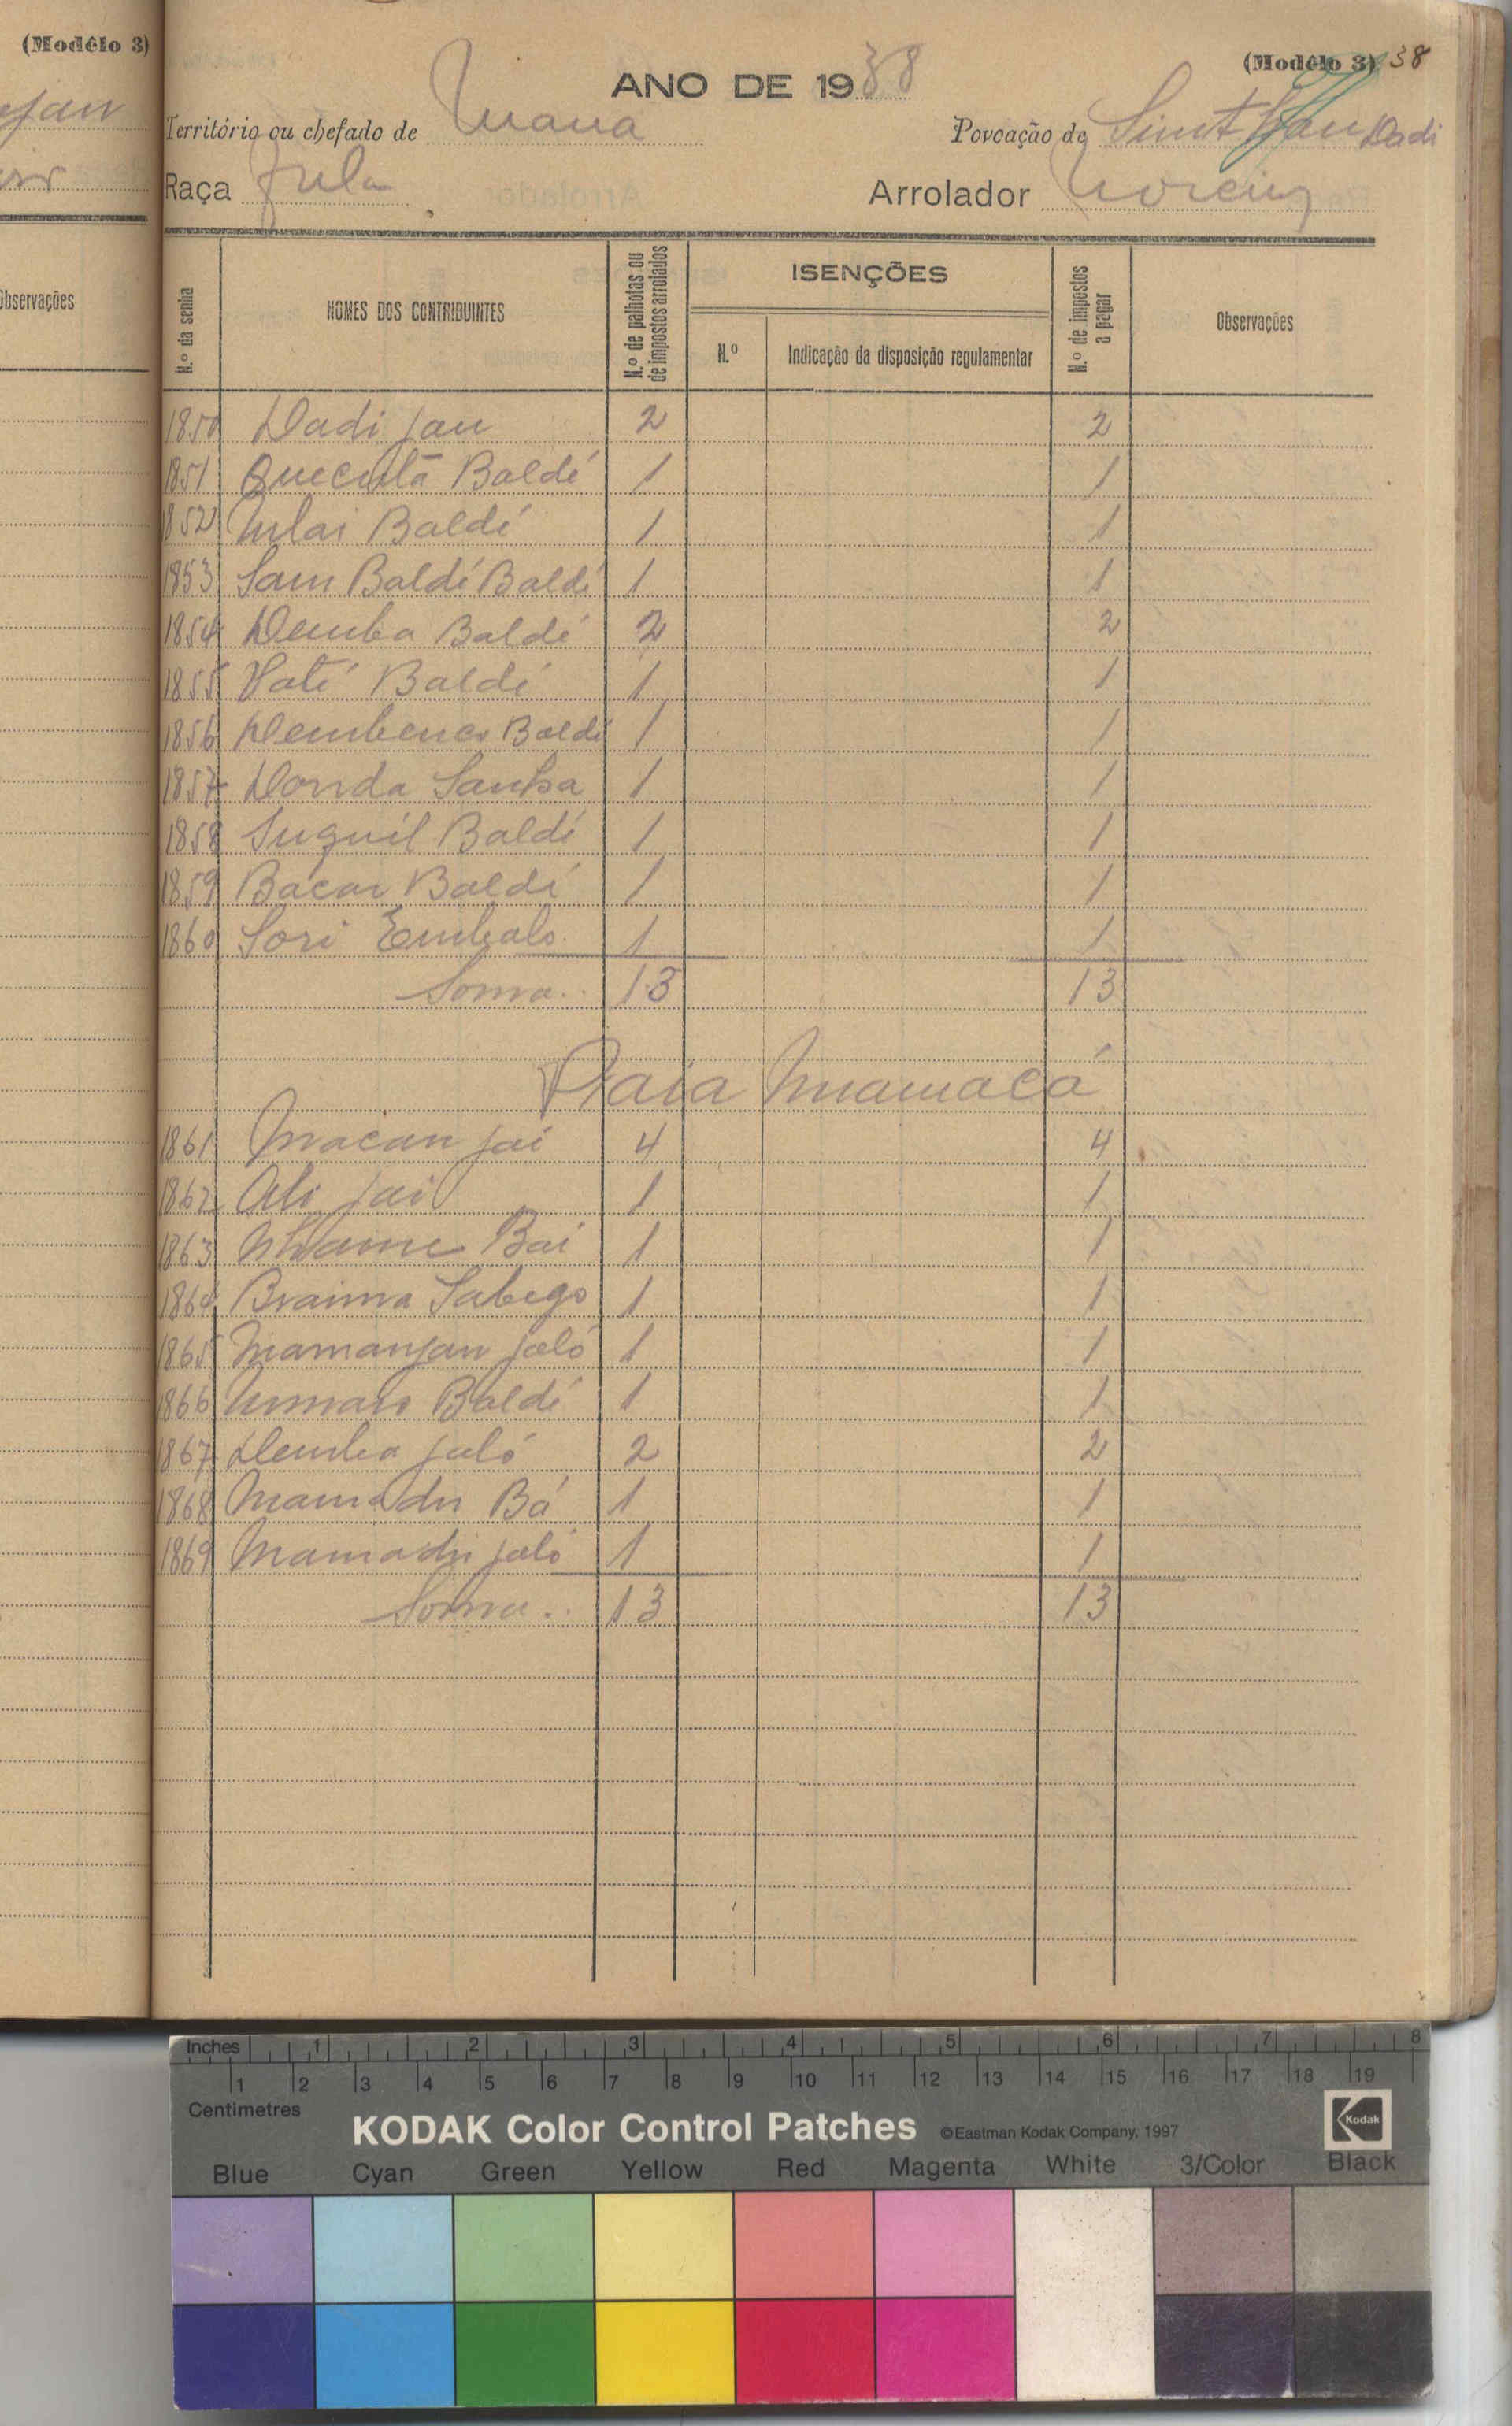 (Modêlo 3)
(Modêlo 3) 38
ANO DE 1938
Território ou chefado de Mana
Povoação de Sint Jau Dadi
Raça Fula
Arrolador Moreira
Observações
N.º da senha
NOMES DOS CONTRIBUINTES
N.º de palhotas ou de impostos arrolados
ISENÇÕES
N.º
Indicação da disposição regulamentar
N.º de impostos a pagar
Observações
1850 Dadi Jau 2 2
1851 Quecutã Baldé 1 1
1852 Baldé 1 1
1853 Sam Baldé Baldé 1 1
1854 Demba Baldé 2 2
1855 Baldé 1 1
1856 Baldé 1 1
1857 Donda Sanha 1 1
1858 Baldé 1 1
1859 Bacar Baldé 1 1
1860 Sori Embalo 1 1
Soma.. 13 13
Mamacá
1861 Macan Jai 4 4
1862 Ali Jai 1 1
1863 Bai 1 1
1864 Braima Sabego 1 1
1865 Mamanjan Jaló 1 1
1866 Umaro Baldé 1 1
1867 Demba Jaló 2 2
1868 Mamadu Bá 1 1
1869 Mamadu Jaló 1 1
Soma.. 13 13
Inches 1 2 3 4 5 6 7 8
1 2 3 4 5 6 7 8 9 10 11 12 13 14 15 16 17 18 19
Centimetres
KODAK Color Control Patches ©Eastman Kodak Company, 1997 Kodak
Blue Cyan Green Yellow Red Magenta White 3/Color Black